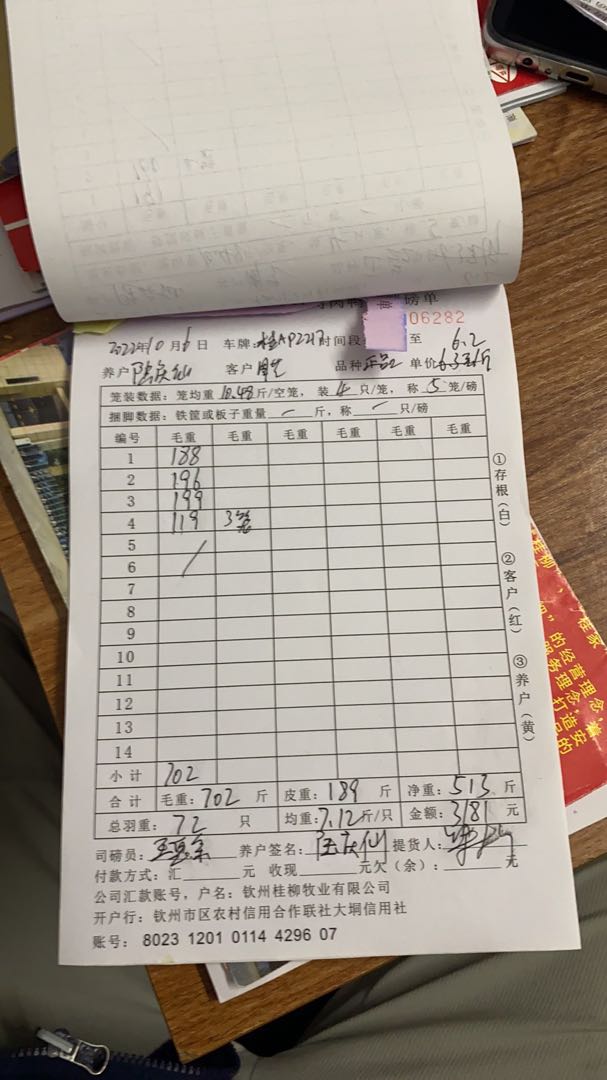 磅单
06282
2022年10月6日 车牌:桂AP2217 时间段 至 6.2
养户 客户 品种 正品2 单价6.3元/斤
笼装数据：笼均重10.48斤/空笼，装4只/笼，称5笼/磅
捆脚数据：铁筐或板子重量 — 斤，称 — 只/磅
编号 毛重 毛重 毛重 毛重 毛重 毛重
1 188
2 196
3 199
4 119 3笼
5
6
7
8
9
10
11
12
13
14
小计 702
合计 毛重：702 斤 皮重：189 斤 净重：513 斤
总羽重：72 只 均重：7.12斤/只 金额：3181 元
司磅员： 养户签名： 提货人：
付款方式：汇 元 收现 元欠（余）： 元
公司汇款账号，户名：钦州桂柳牧业有限公司
开户行：钦州市区农村信用合作联社大垌信用社
账号： 8023 1201 0114 4296 07
①存根（白）
②客户（红）
③养户（黄）
的经营理念
服务理念
打造安